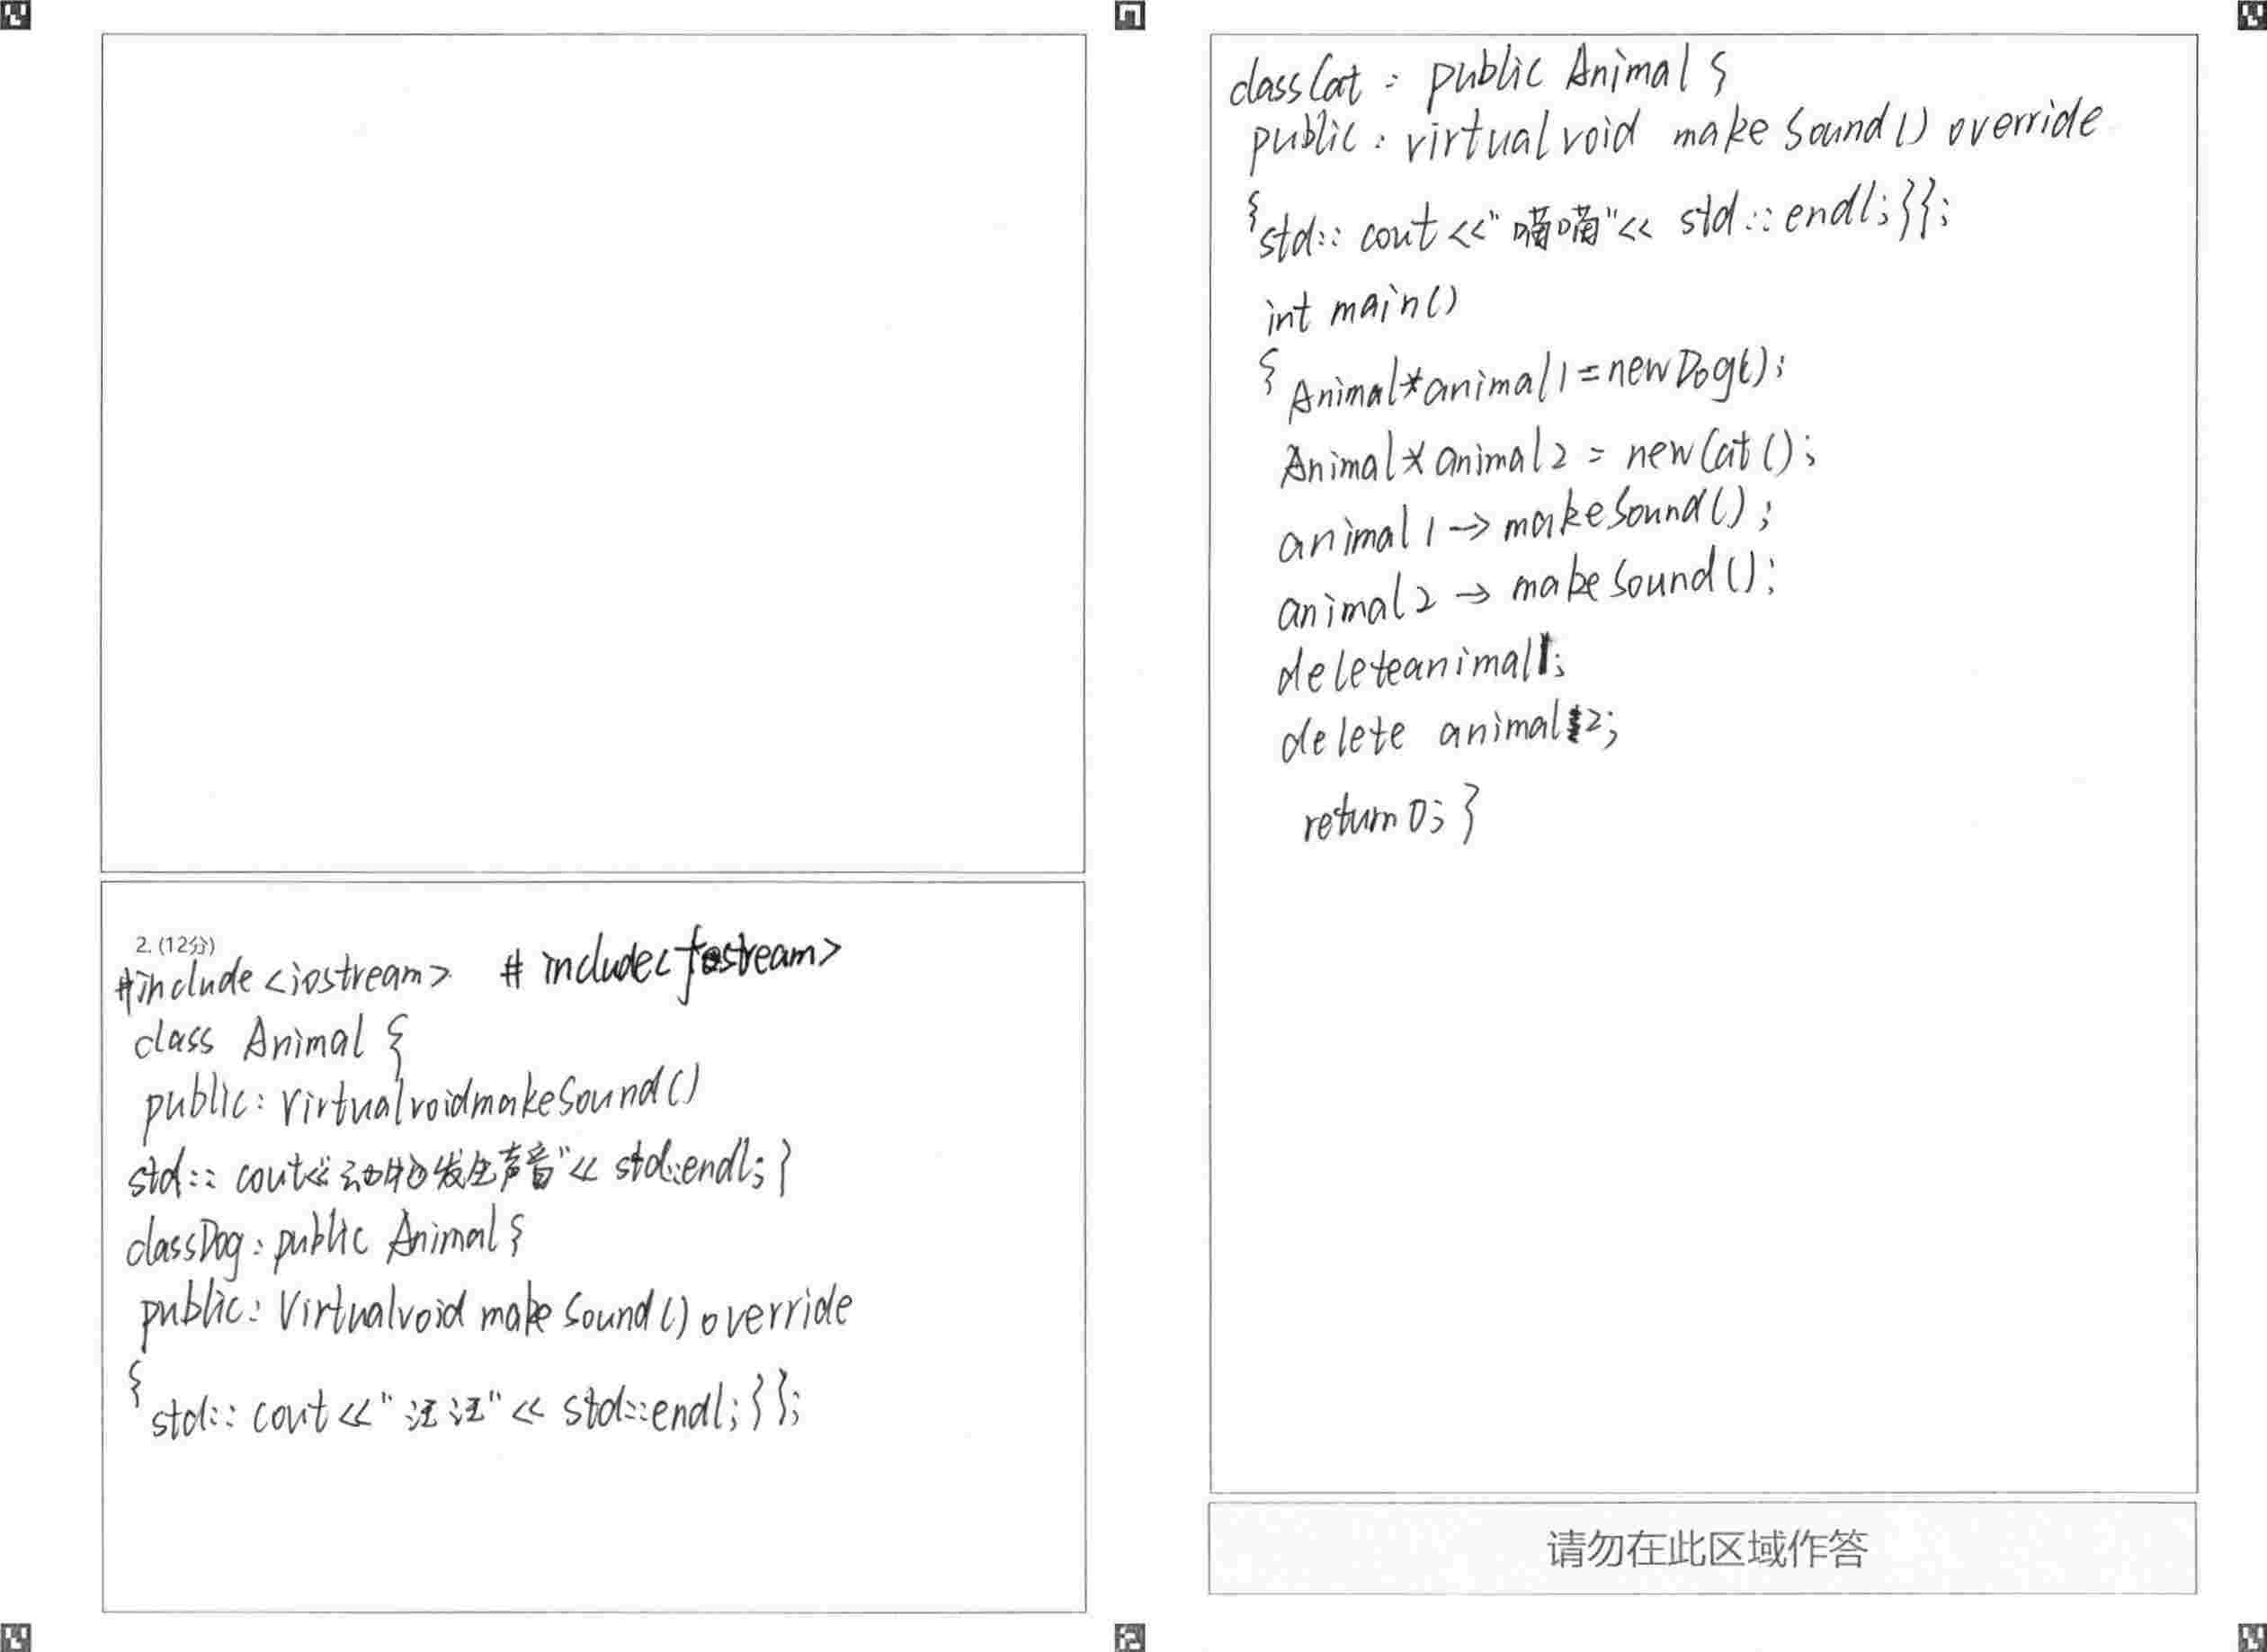 2. (12分)
#include <iostream> # include<fostream>
class Animal {
public: virtualvoidmakeSound()
std:: cout<<"动物发生声音"<< std::endl; }
classDog: public Animal {
public: Virtualvoid makeSound() override
{
std:: cout <<" 汪汪"<< std::endl; } };
classCat : public Animal {
public: virtual void make Sound() override
{
std:: cout <<" 喵喵"<< std:: endl; } };
int main()
{ Animal*animal1=newDog();
Animal*animal2 = newCat();
animal1 -> makeSound();
animal2 -> makeSound();
deleteanimal1;
delete animal2;
return 0; }
请勿在此区域作答